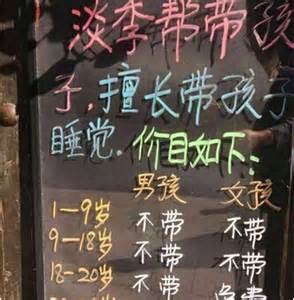 淡季帮带孩
子，擅长带孩子
睡觉．价目如下：
男孩 女孩
1-9岁 不带 不带
9-18岁 不带 不带
18-20岁 不带